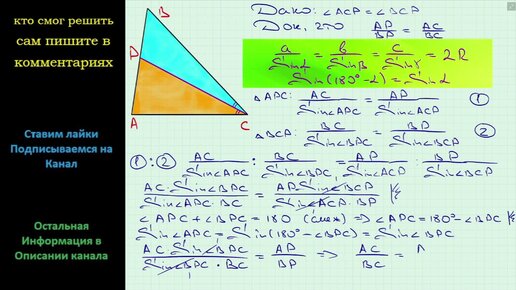 кто смог решить
сам пишите в
комментариях
Ставим лайки
Подписываемся на
Канал
Остальная
Информация в
Описании канала
B
D
A
C
Дано: ∠ACD = ∠BCD
Док, что AD/BD = AC/BC
a/Sinα = b/Sinβ = c/Sinγ = 2R
Sin(180°-α) = Sinα
△ADC: AC/Sin∠ADC = AD/Sin∠ACD ①
△BCD: BC/Sin∠BDC = BD/Sin∠BCD ②
①:② AC/Sin∠ADC : BC/Sin∠BDC = AD/Sin∠ACD : BD/Sin∠BCD
AC·Sin∠BDC/Sin∠ADC·BC = AD·Sin∠BCD/Sin∠ACD·BD
∠ADC + ∠BDC = 180° (смеж) => ∠ADC = 180° - ∠BDC
Sin∠ADC = Sin(180° - ∠BDC) = Sin∠BDC
AC·Sin∠BDC/Sin∠BDC·BC = AD/BD => AC/BC =